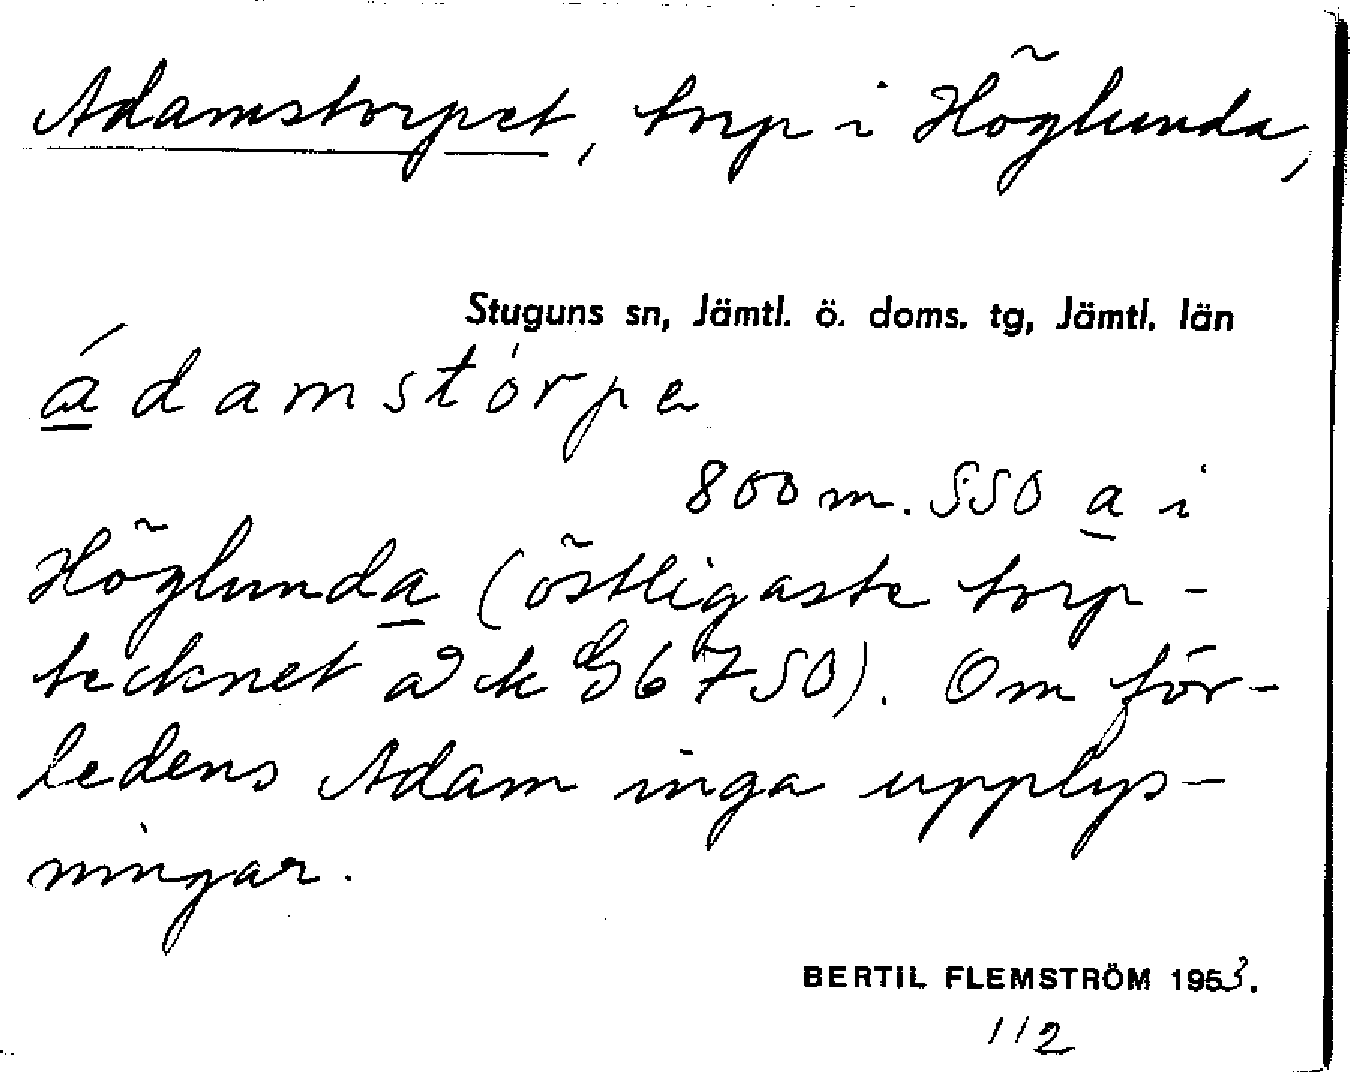 Adamstorpet, torp i Höglunda,
Stuguns sn, Jämtl. ö. doms. tg, Jämtl. län
ádamstórpe
800 m. SSO a i
Höglunda (östligaste torp-
tecknet å ek G6750). Om för-
ledens Adam inga upplys-
ningar.
BERTIL FLEMSTRÖM 1953.
112